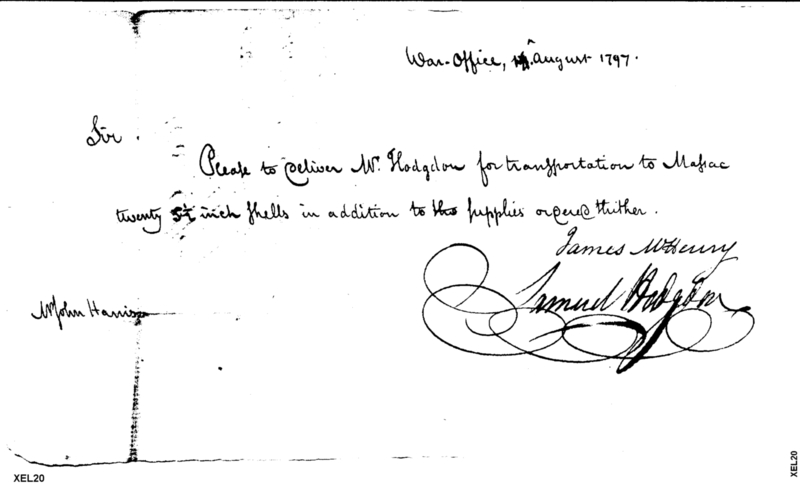 War-Office, August 1797.
Sir
Please to deliver Mr. Hodgdon for transportation to Massac
twenty 5½ inch shells in addition to the supplies ordered thither.
James McHenry
Samuel Hodgdon
Mr John Harrison
XEL20
XEL20